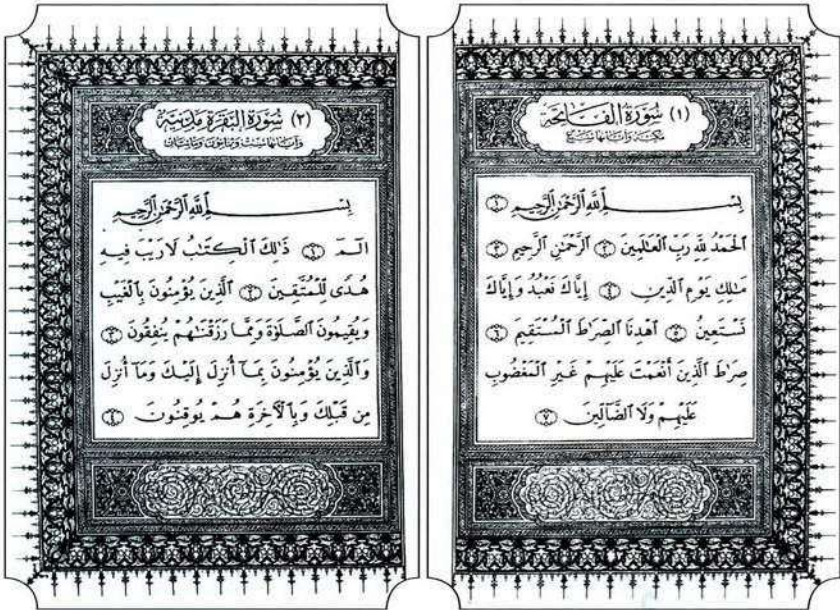 (١) سُورَةُ الفَاتِحَة
مكيّة وآياتها سَبع
بِسْمِ ٱللَّهِ ٱلرَّحْمَٰنِ ٱلرَّحِيمِ ١
ٱلْحَمْدُ لِلَّهِ رَبِّ ٱلْعَٰلَمِينَ ٢ ٱلرَّحْمَٰنِ ٱلرَّحِيمِ ٣
مَٰلِكِ يَوْمِ ٱلدِّينِ ٤ إِيَّاكَ نَعْبُدُ وَإِيَّاكَ
نَسْتَعِينُ ٥ ٱهْدِنَا ٱلصِّرَٰطَ ٱلْمُسْتَقِيمَ ٦
صِرَٰطَ ٱلَّذِينَ أَنْعَمْتَ عَلَيْهِمْ غَيْرِ ٱلْمَغْضُوبِ
عَلَيْهِمْ وَلَا ٱلضَّآلِّينَ ٧
(٢) سُورَةُ البَقَرَةِ مَدنيَّة
وآياتها سِت وثمانون ومائتان
بِسْمِ ٱللَّهِ ٱلرَّحْمَٰنِ ٱلرَّحِيمِ
الٓمٓ ١ ذَٰلِكَ ٱلْكِتَٰبُ لَا رَيْبَ فِيهِ
هُدًى لِّلْمُتَّقِينَ ٢ ٱلَّذِينَ يُؤْمِنُونَ بِٱلْغَيْبِ
وَيُقِيمُونَ ٱلصَّلَوٰةَ وَمِمَّا رَزَقْنَٰهُمْ يُنفِقُونَ ٣
وَٱلَّذِينَ يُؤْمِنُونَ بِمَآ أُنزِلَ إِلَيْكَ وَمَآ أُنزِلَ
مِن قَبْلِكَ وَبِٱلْءَاخِرَةِ هُمْ يُوقِنُونَ ٤